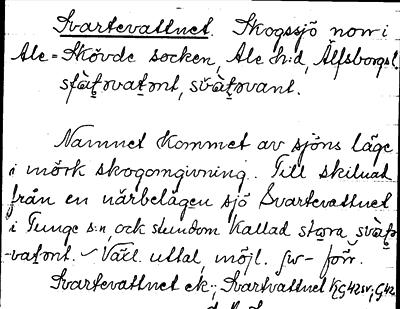 Svartevattnet. Skogssjö norr i
Ale-Skövde socken, Ale h:d, Älfsborgs l.
svàʈəvatənt, svàʈəvant.
Namnet kommet av sjöns läge
i mörk skogomgivning. Till skilnad
från en närbelägen sjö Svartevattnet
i Tunge s:n, ock stundom kallad stora svàʈə-
-vatənt. Växl. uttal, möjl. sv- förr.
Svartevattnet ek.; Svartvattnet